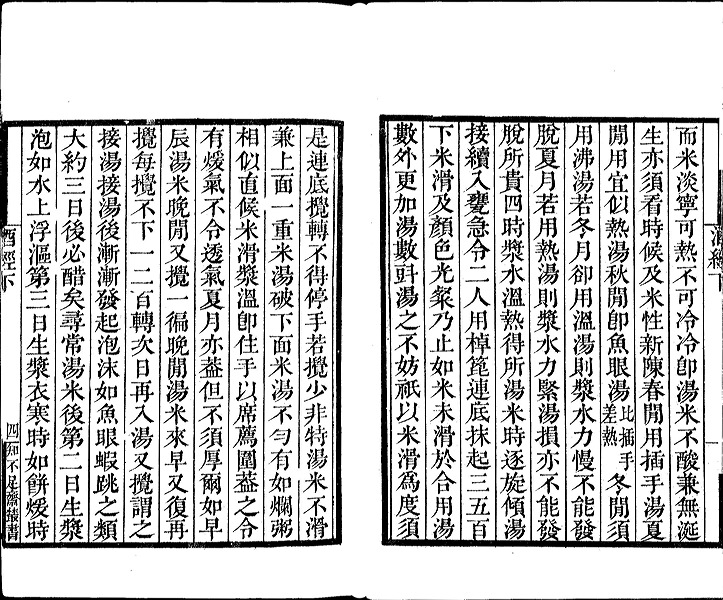 而米淡寧可熱不可冷冷卽湯米不酸兼無涎
生亦須看時候及米性新陳春閒用插手湯夏
閒用宜似熱湯秋閒卽魚眼湯比插手差熱冬閒須
用沸湯若冬月卻用溫湯則漿水力慢不能發
脫夏月若用熱湯則漿水力緊湯損亦不能發
脫所貴四時漿水溫熱得所湯米時逐旋傾湯
接續入甕急令二人用棹篦連底抹起三五百
下米滑及顏色光粲乃止如米未滑於合用湯
數外更加湯數斗湯之不妨祇以米滑為度須
是連底攪轉不得停手若攪少非特湯米不滑
兼上面一重米湯破下面米湯不勻有如爛粥
相似直候米滑漿溫卽住手以席薦圍蓋之令
有煖氣不令透氣夏月亦蓋但不須厚爾如早
辰湯米晚閒又攪一徧晚閒湯米來早又復再
攪每攪不下一二百轉次日再入湯又攪謂之
接湯接湯後漸漸發起泡沫如魚眼蝦跳之類
大約三日後必醋矣尋常湯米後第二日生漿
泡如水上浮漚第三日生漿衣寒時如餅煖時
酒經下
四
知不足齋叢書